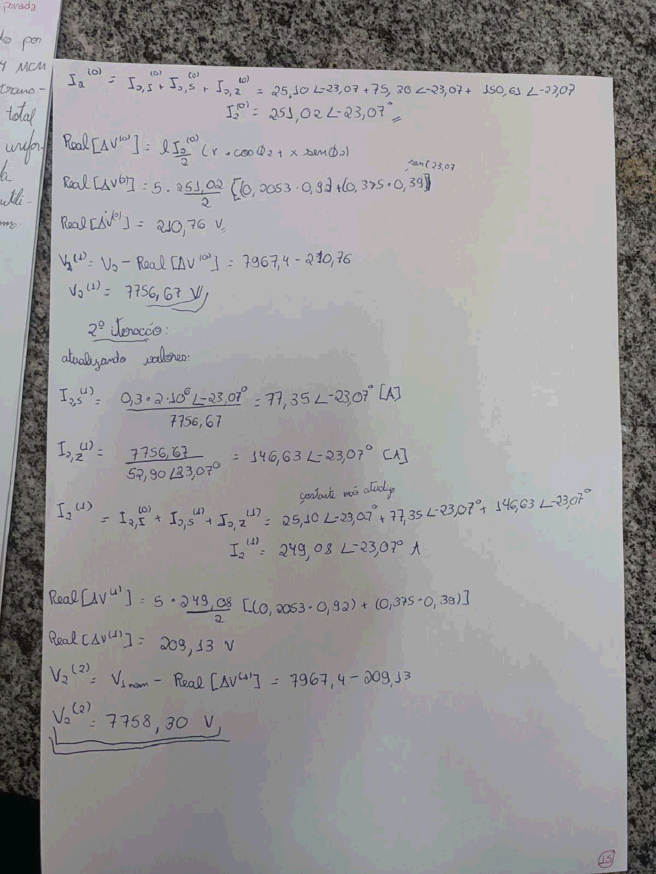 porada
do por
4 MCM
trans-
total
unifor-
da
utili-
I₂⁽⁰⁾ = I₂,I⁽⁰⁾ + I₂,S⁽⁰⁾ + I₂,Z⁽⁰⁾ = 25,10 ∠-23,07 + 75,30 ∠-23,07 + 150,61 ∠-23,07
I₂⁽⁰⁾ = 251,02 ∠-23,07°
Real[ΔV⁽⁰⁾] = l I₂⁽⁰⁾/2 (r · cosϕ₂ + x senϕ₂)
sen(23,07
Real[ΔV⁽⁰⁾] = 5 · 251,02/2 [(0,2053 · 0,92) + (0,375 · 0,39)]
Real[ΔV⁽⁰⁾] = 210,76 V
V₂⁽¹⁾ = V₂ - Real[ΔV⁽⁰⁾] = 7967,4 - 210,76
V₂⁽¹⁾ = 7756,67 V
2º iteração:
atualizando valores:
I₂,S⁽¹⁾ = 0,3 · 2 · 10⁶ ∠-23,07°/7756,67 = 77,35 ∠-23,07° [A]
I₂,Z⁽¹⁾ = 7756,67/52,90 ∠23,07° = 146,63 ∠-23,07° [A]
constante não atualiza
I₂⁽¹⁾ = I₂,I⁽⁰⁾ + I₂,S⁽¹⁾ + I₂,Z⁽¹⁾ = 25,10 ∠-23,07° + 77,35 ∠-23,07° + 146,63 ∠-23,07°
I₂⁽¹⁾ = 249,08 ∠-23,07° A
Real[ΔV⁽¹⁾] = 5 · 249,08/2 [(0,2053 · 0,92) + (0,375 · 0,39)]
Real[ΔV⁽¹⁾] = 209,13 V
V₂⁽²⁾ = V₁nom - Real[ΔV⁽¹⁾] = 7967,4 - 209,13
V₂⁽²⁾ = 7758,30 V
15